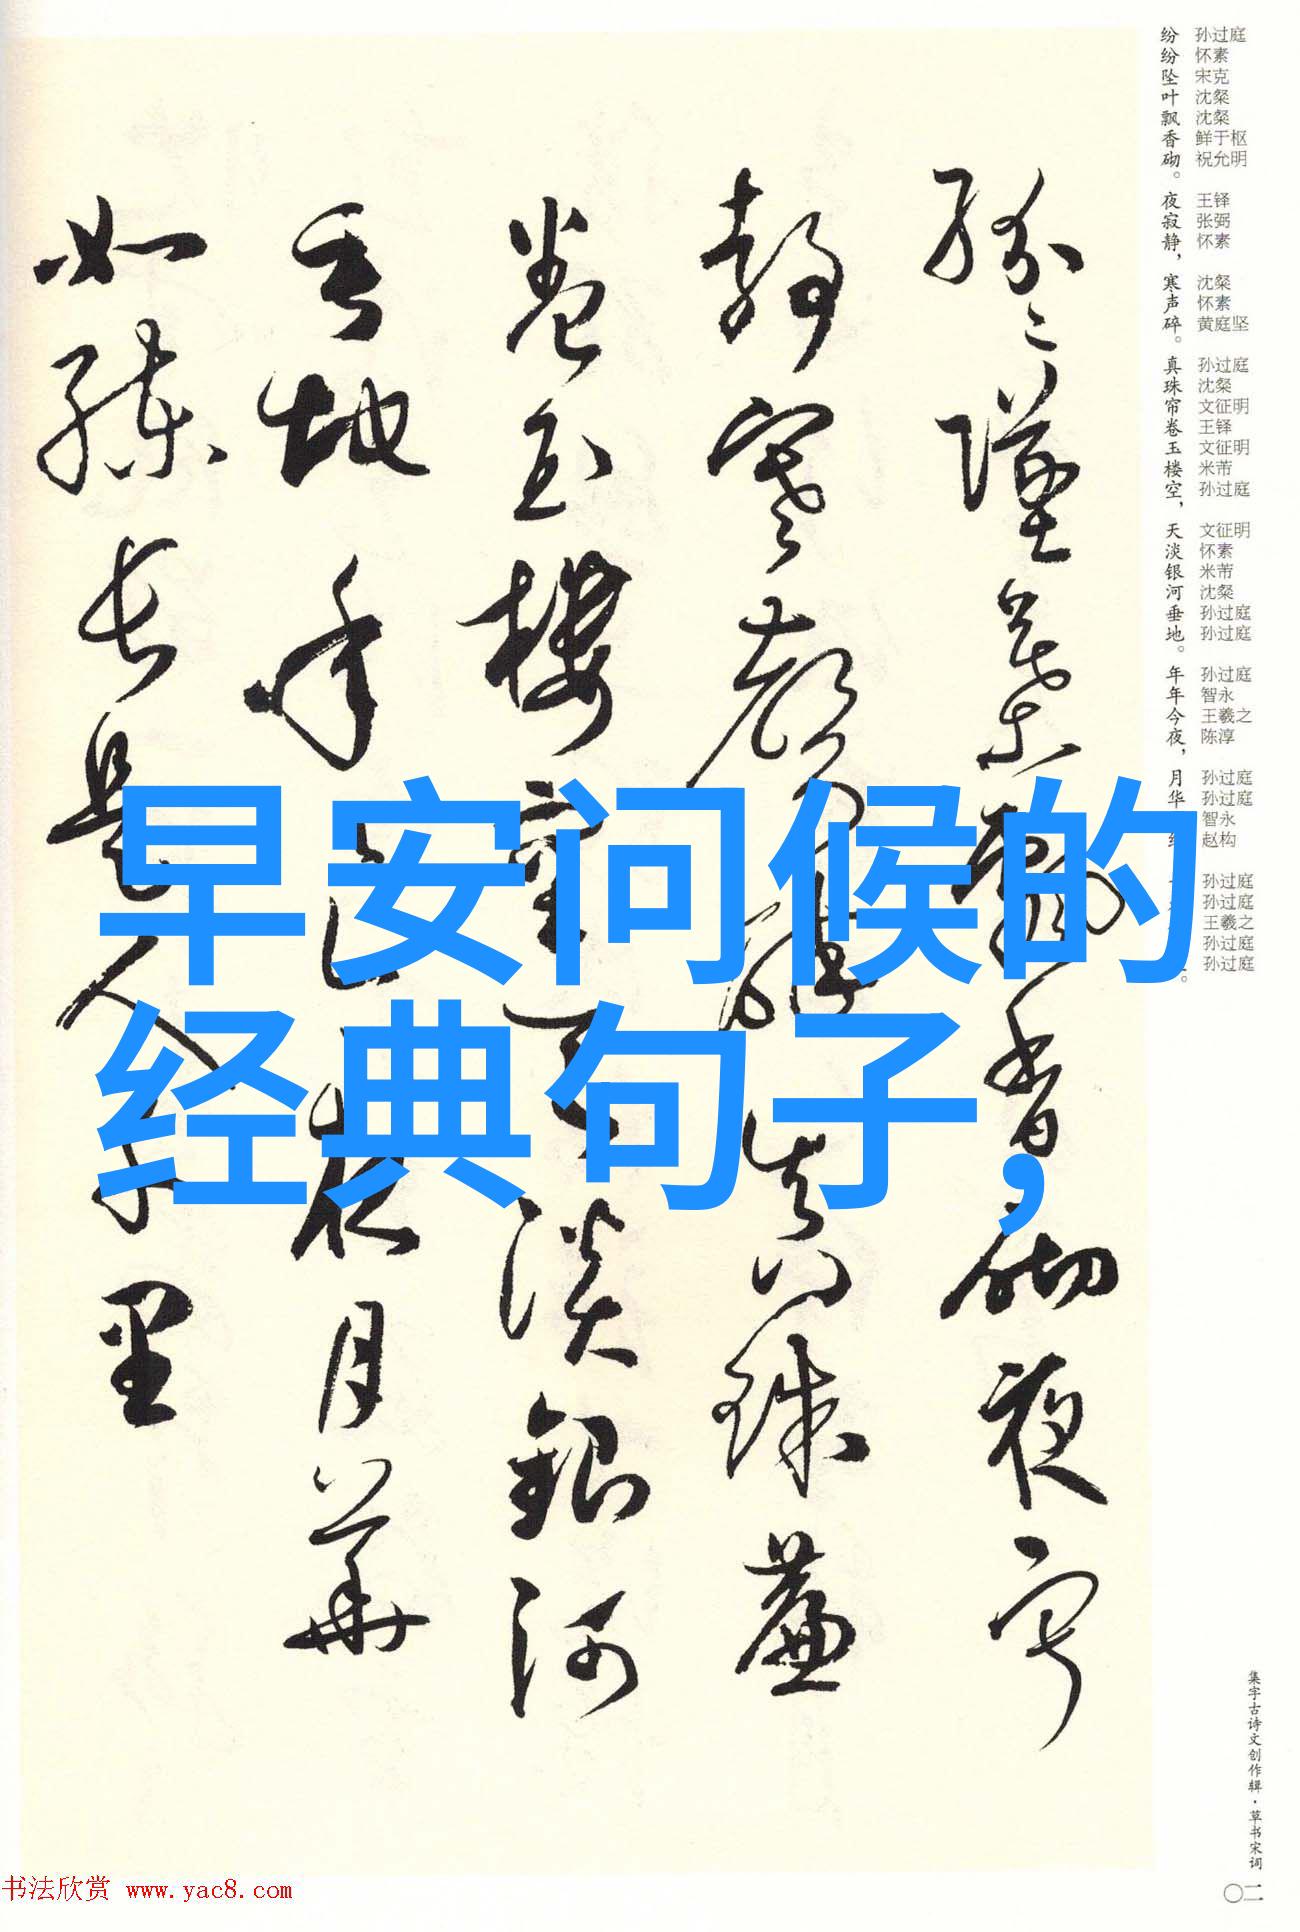 早安问候的
经典句子，
纷纷坠叶飘香砌。夜
寂静，寒声碎。真珠帘
卷玉楼空，天淡银河
垂地。年年今夜，月华
如练，长是人千里
纷 孙过庭
纷 怀素
坠 宋克
叶 沈粲
飘 沈粲
香 鲜于枢
砌。 祝允明
夜 王铎
寂 张弼
静， 怀素
寒 沈粲
声 怀素
碎。 黄庭坚
真 孙过庭
珠 沈粲
帘 文征明
卷 王铎
玉 文征明
楼 米芾
空， 孙过庭
天 文征明
淡 怀素
银 米芾
河 沈粲
垂 孙过庭
地。 孙过庭
年 孙过庭
年 智永
今 王羲之
夜， 陈淳
月 孙过庭
华 孙过庭
智永
赵构
孙过庭
孙过庭
王羲之
孙过庭
孙过庭
集字古诗文创作辑·草书宋词
〇二
书法欣赏 www.yac8.com